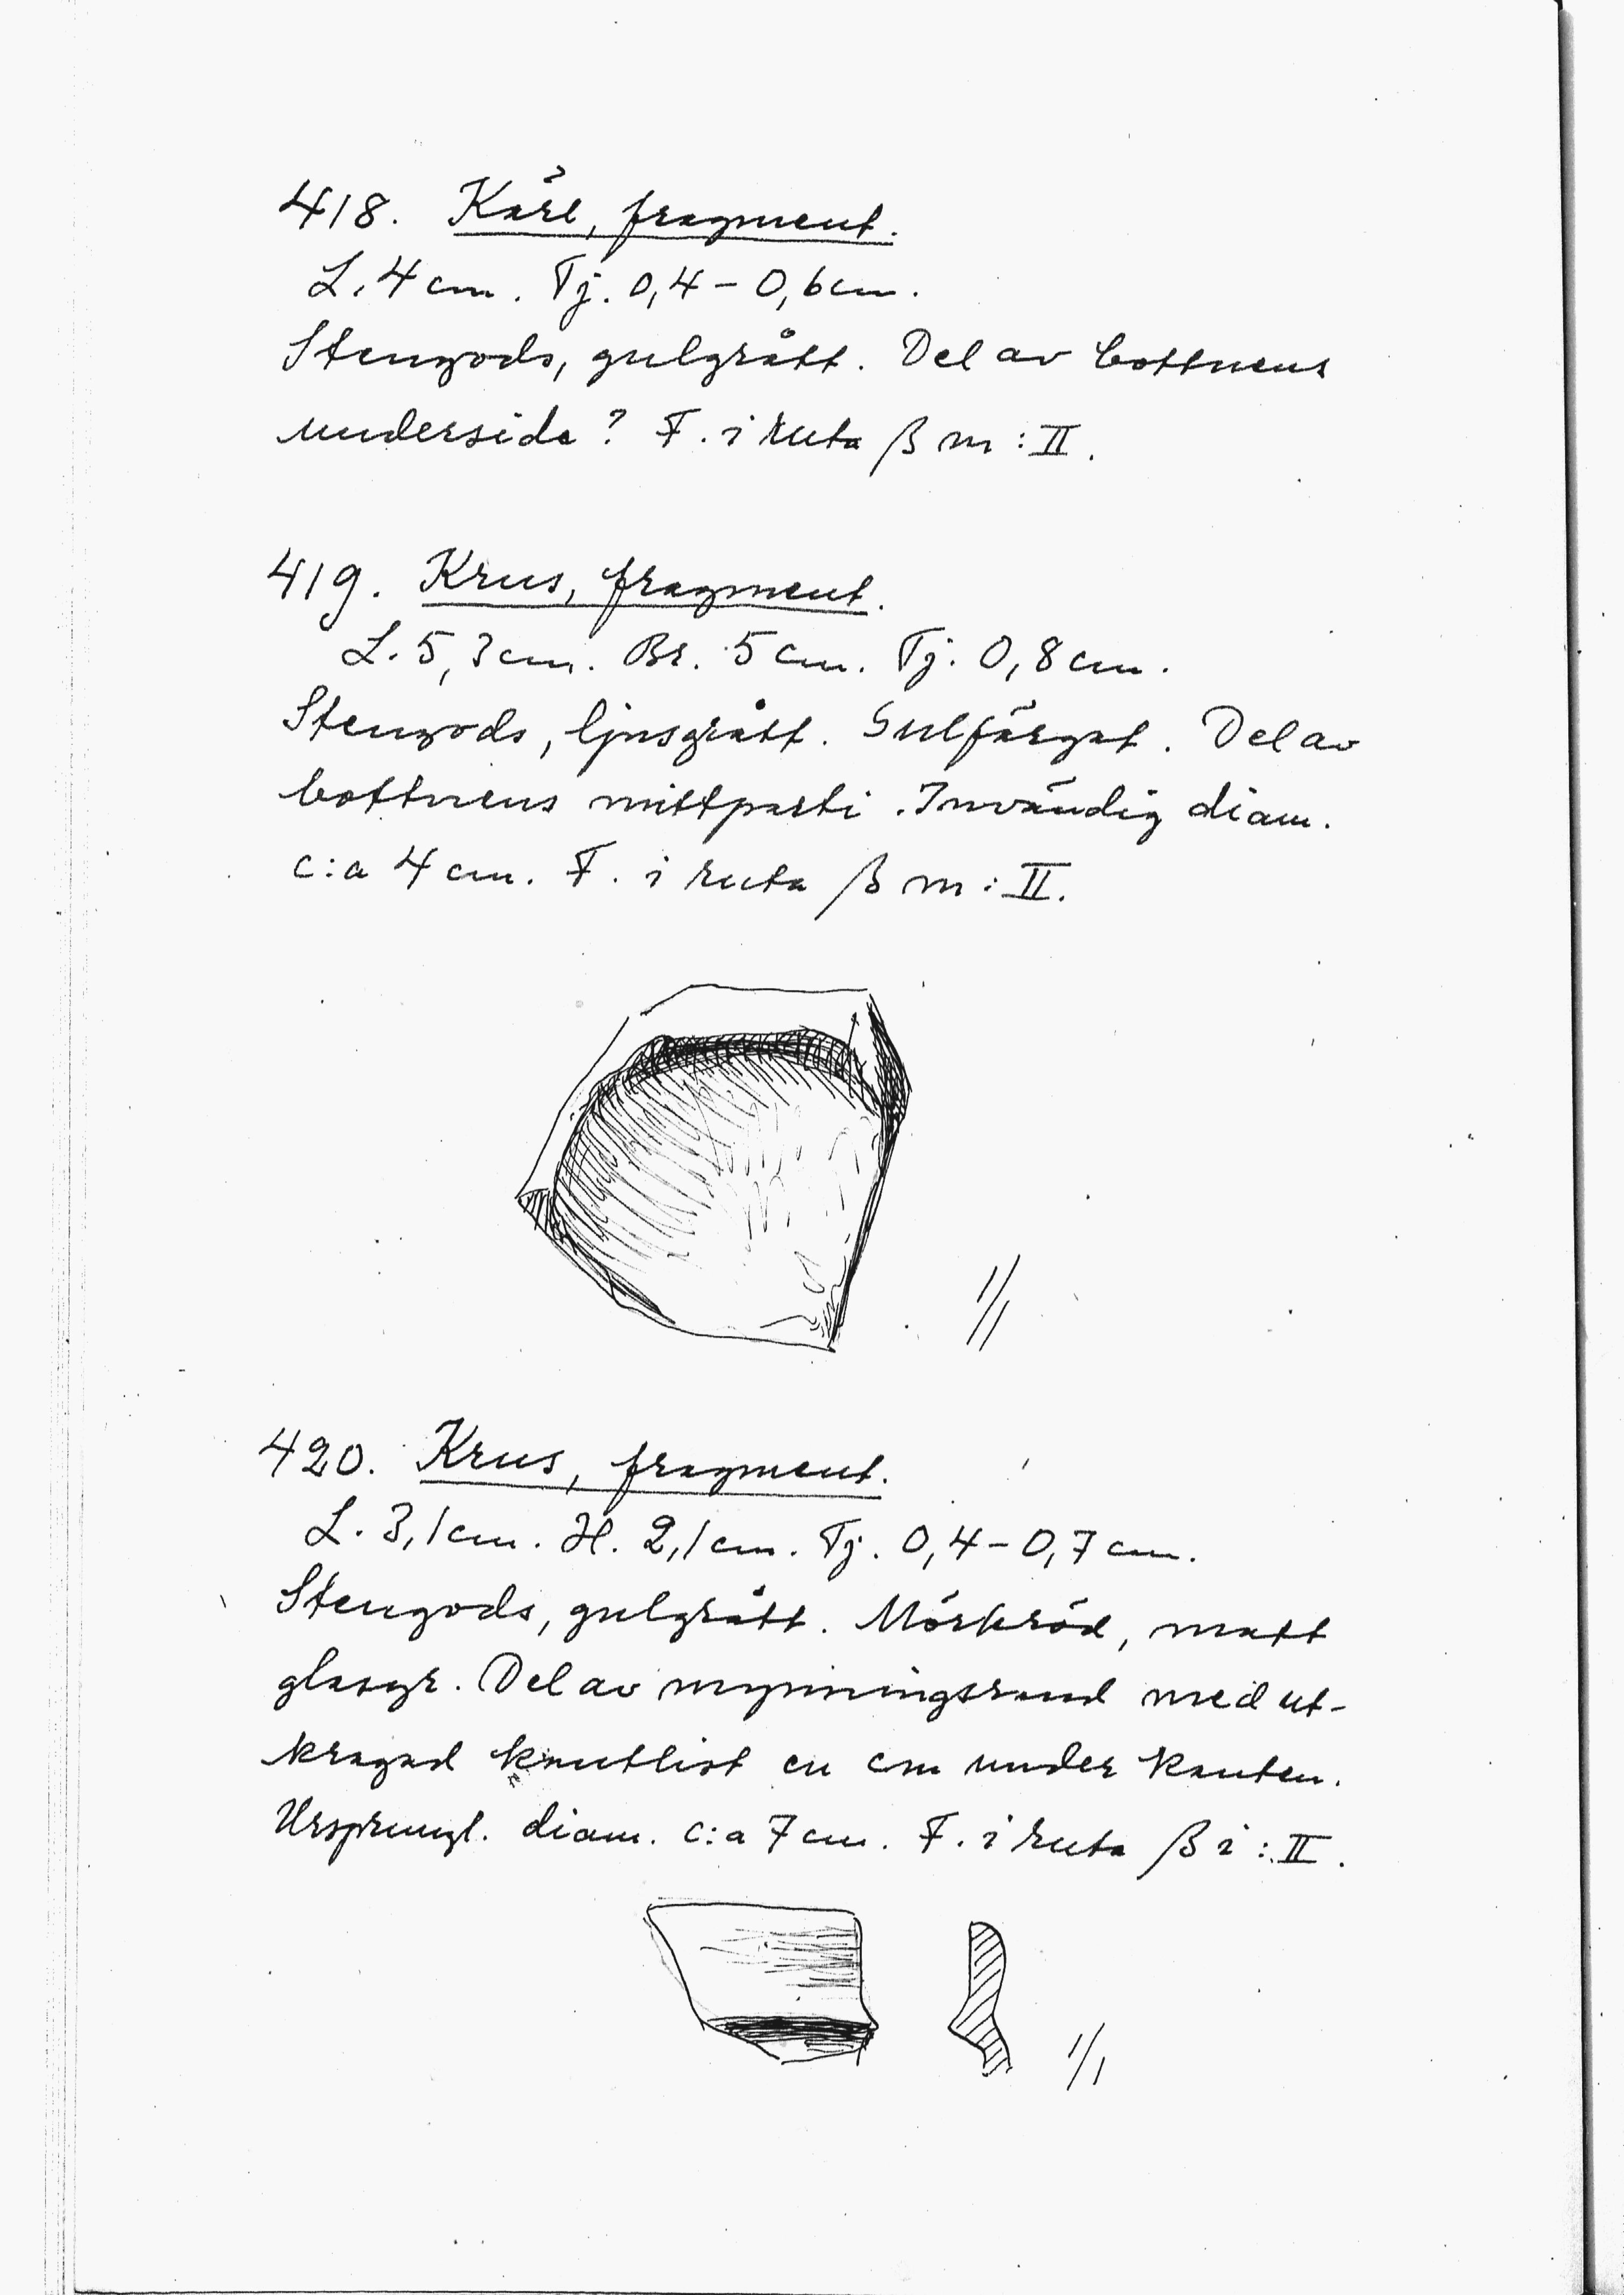 418. Kärl, fragment.
L. 4 cm. Tj. 0,4 – 0,6 cm.
Stengods, gulgrått. Del av bottnens
undersida? F. i ruta β m : II.
419. Krus, fragment.
L. 5,3 cm. Br. 5 cm. Tj. 0,8 cm.
Stengods, ljusgrått. Gulfärgat. Del av
bottnens mittparti. Invändig diam.
c:a 4 cm. F. i ruta β m : II.
1/1
420. Krus, fragment.
L. 3,1 cm. H. 2,1 cm. Tj. 0,4 – 0,7 cm.
Stengods, gulgrått. Mörkröd, matt
glasyr. Del av mynningsrand med ut-
kragad kantlist en cm under kanten.
Ursprungl. diam. c:a 7 cm. F. i ruta β i : II.
1/1